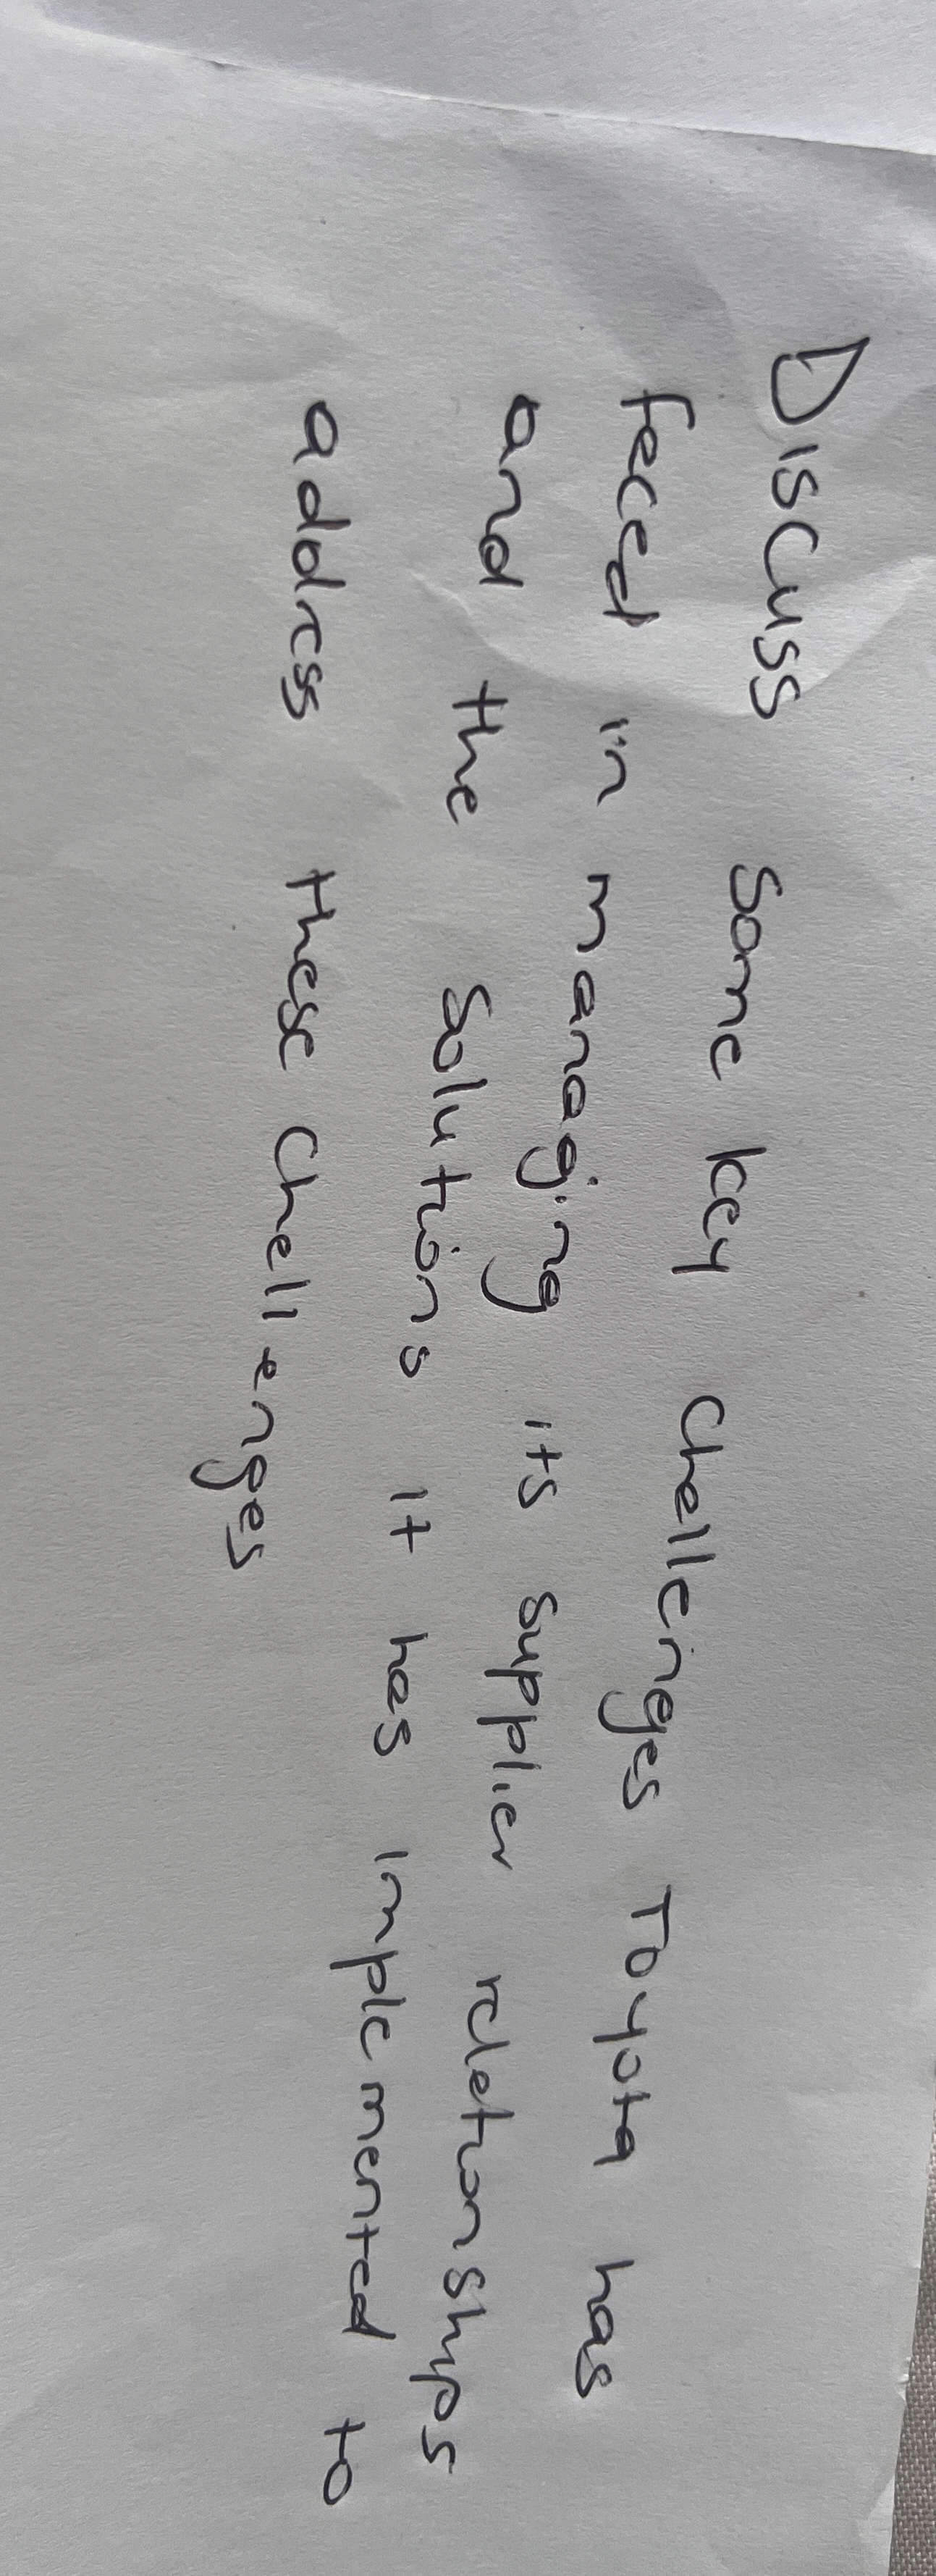 Discuss some key challenges Toyota has
faced in managing its supplier relationships
and the solutions it has implemented to
address these challenges